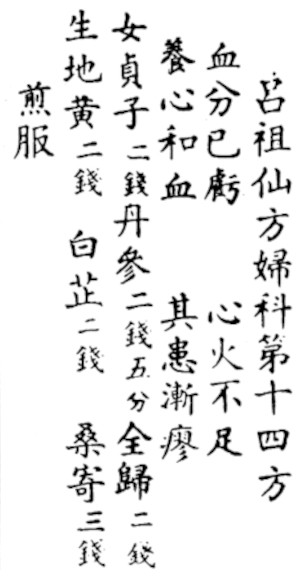 呂祖仙方婦科第十四方
血分已虧 心火不足
養心和血 其患漸瘳
女貞子二錢丹參二錢五分全歸二錢
生地黃二錢 白芷二錢 桑寄三錢
煎服